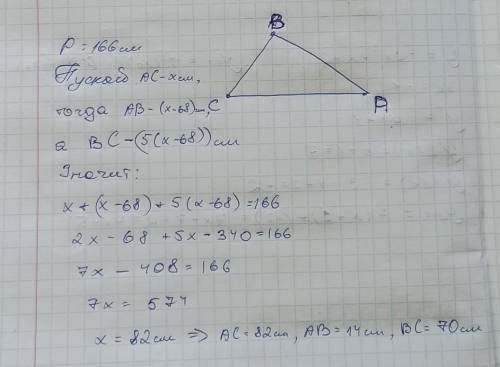 B
P = 166 см
Пускай AC - x см,
тогда AB - (x-68) см, C
A
а BC - (5(x-68)) см
Значит:
x + (x-68) + 5(x-68) = 166
2x - 68 + 5x - 340 = 166
7x - 408 = 166
7x = 574
x = 82 см => AC = 82 см, AB = 14 см, BC = 70 см